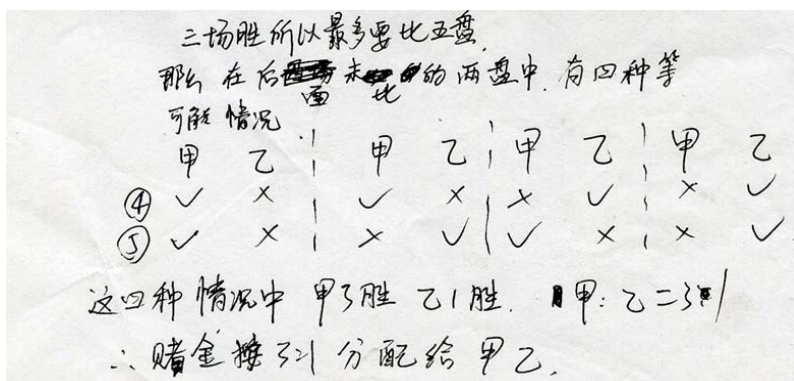 三场胜所以最多要比五盘,
那么在后面未比的两盘中,有四种等
可能情况
甲 乙 甲 乙 甲 乙 甲 乙
④ ✓ × ✓ × × ✓ × ✓
⑤ ✓ × × ✓ ✓ × × ✓
这四种情况中 甲3胜 乙1胜. 甲:乙=3:1
∴赌金按3:1分配给甲乙.